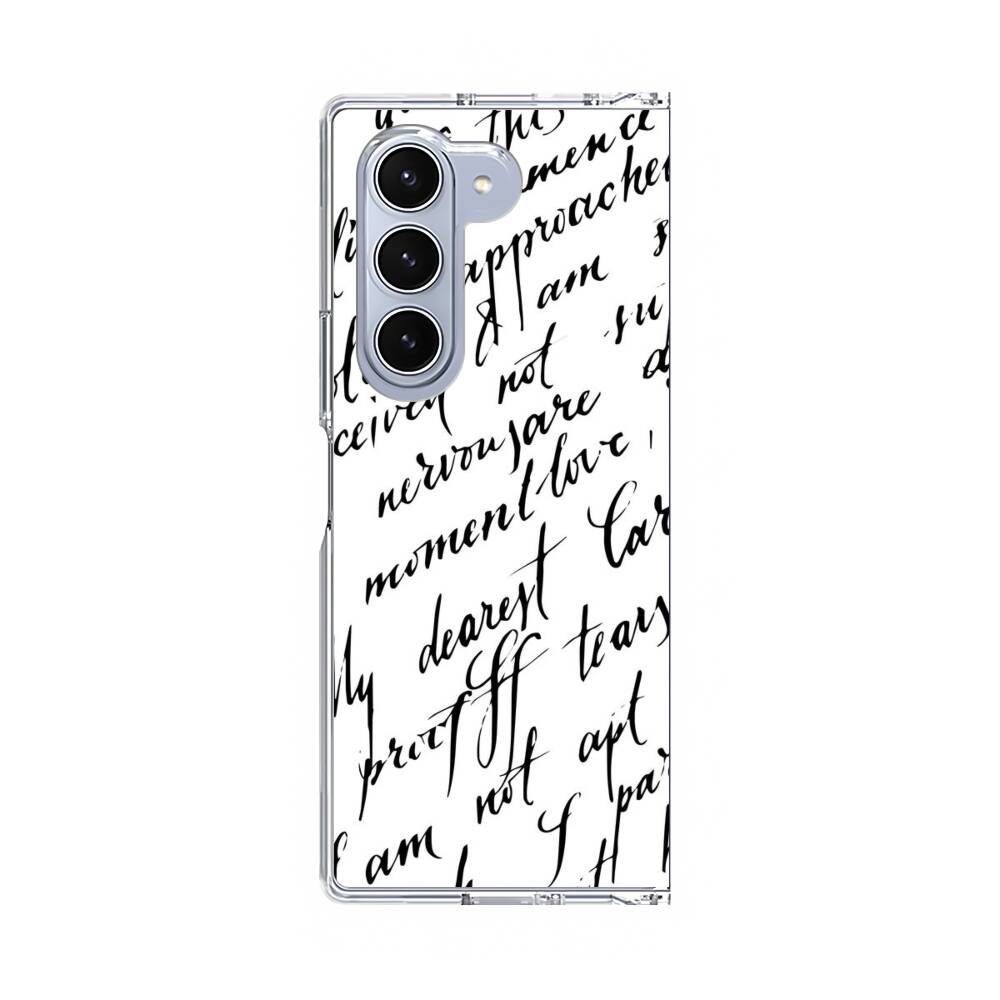 this
mence
approache
I am
ceived not su
nervous are
moment love,
My dearest Car
proof tears
not apt
I am I par